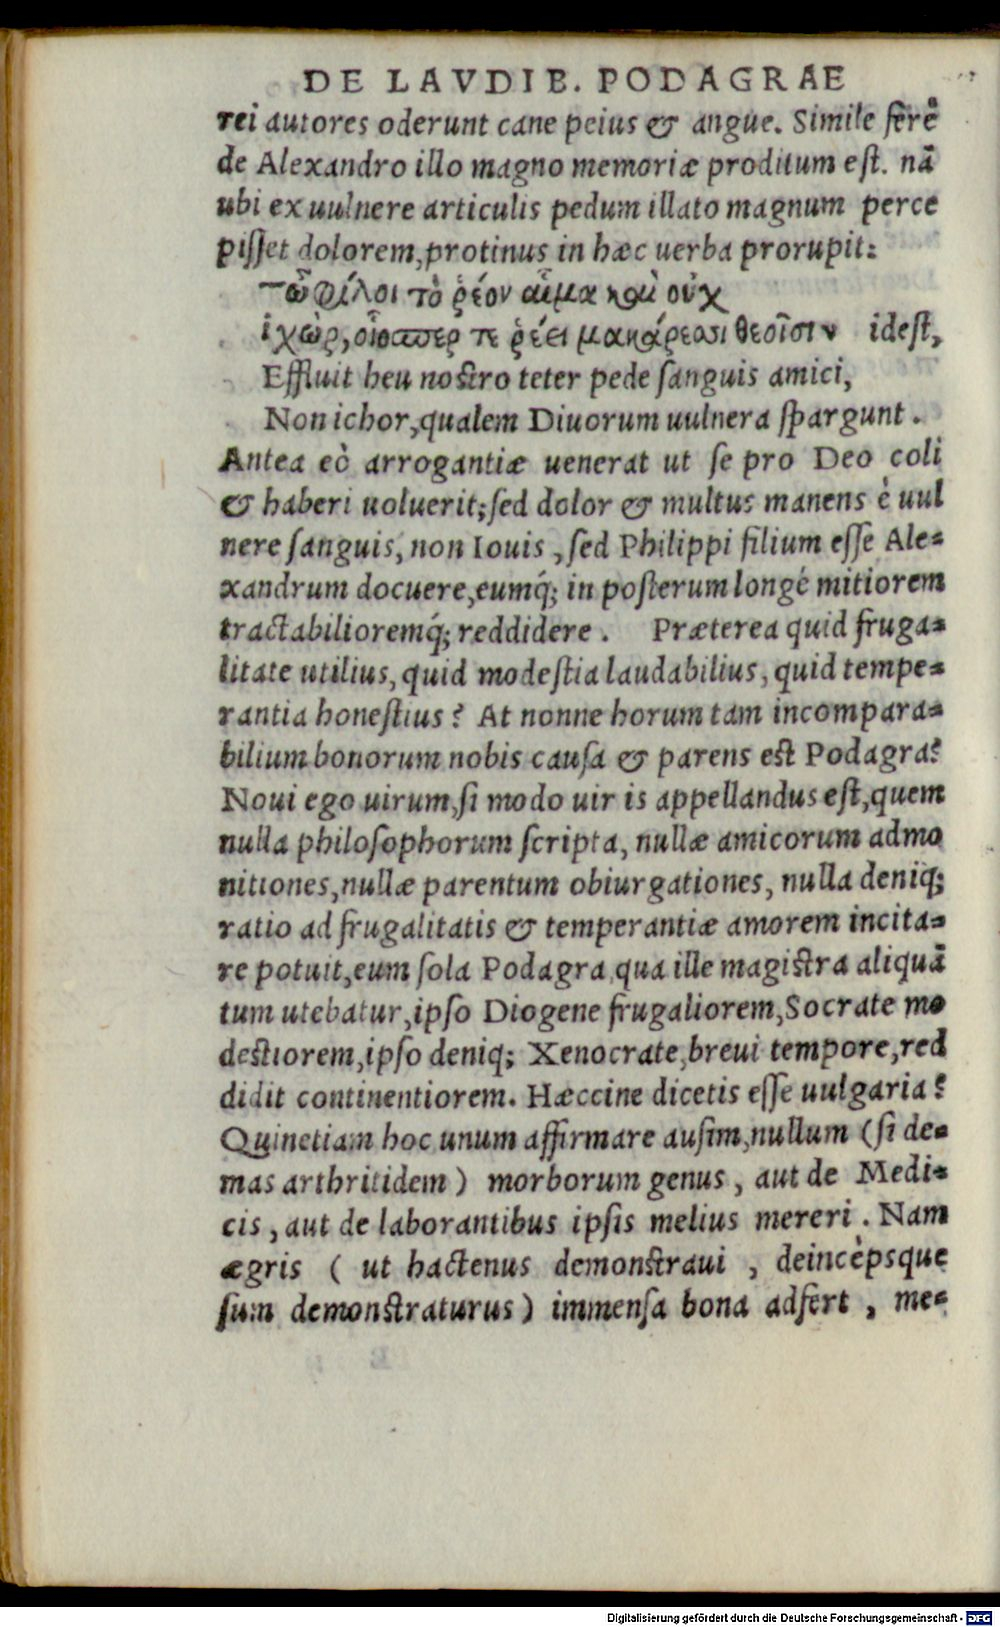 DE LAVDIB. PODAGRAE
rei autores oderunt cane peius & angue. Simile ferè
de Alexandro illo magno memoriæ proditum est. nā
ubi ex uulnere articulis pedum illato magnum perce
pisset dolorem, protinus in hæc uerba prorupit:
ὦ φίλοι τὸ ῥέον αἷμα καὶ οὐχ
ἰχὼρ, οἷοσπερ τε ῥέει μακάρεσσι θεοῖσιν idest,
Effluit heu nostro teter pede sanguis amici,
Non ichor, qualem Diuorum uulnera spargunt.
Antea eò arrogantiæ uenerat ut se pro Deo coli
& haberi uoluerit; sed dolor & multus manens è uul
nere sanguis, non Iouis, sed Philippi filium esse Ale=
xandrum docuere, eumq́; in posterum longè mitiorem
tractabilioremq́; reddidere. Præterea quid fruga=
litate utilius, quid modestia laudabilius, quid tempe=
rantia honestius? At nonne horum tam incompara=
bilium bonorum nobis causa & parens est Podagra?
Noui ego uirum, si modo uir is appellandus est, quem
nulla philosophorum scripta, nullæ amicorum admo
nitiones, nullæ parentum obiurgationes, nulla deniq;
ratio ad frugalitatis & temperantiæ amorem incita=
re potuit, eum sola Podagra qua ille magistra aliquā
tum utebatur, ipso Diogene frugaliorem, Socrate mo
destiorem, ipso deniq; Xenocrate, breui tempore, red
didit continentiorem. Hæccine dicetis esse uulgaria?
Quinetiam hoc unum affirmare ausim, nullum (si de=
mas arthritidem) morborum genus, aut de Medi=
cis, aut de laborantibus ipsis melius mereri. Nam
ægris (ut hactenus demonstraui, deincèpsque
sum demonstraturus) immensa bona adfert, me=
Digitalisierung gefördert durch die Deutsche Forschungsgemeinschaft - DFG